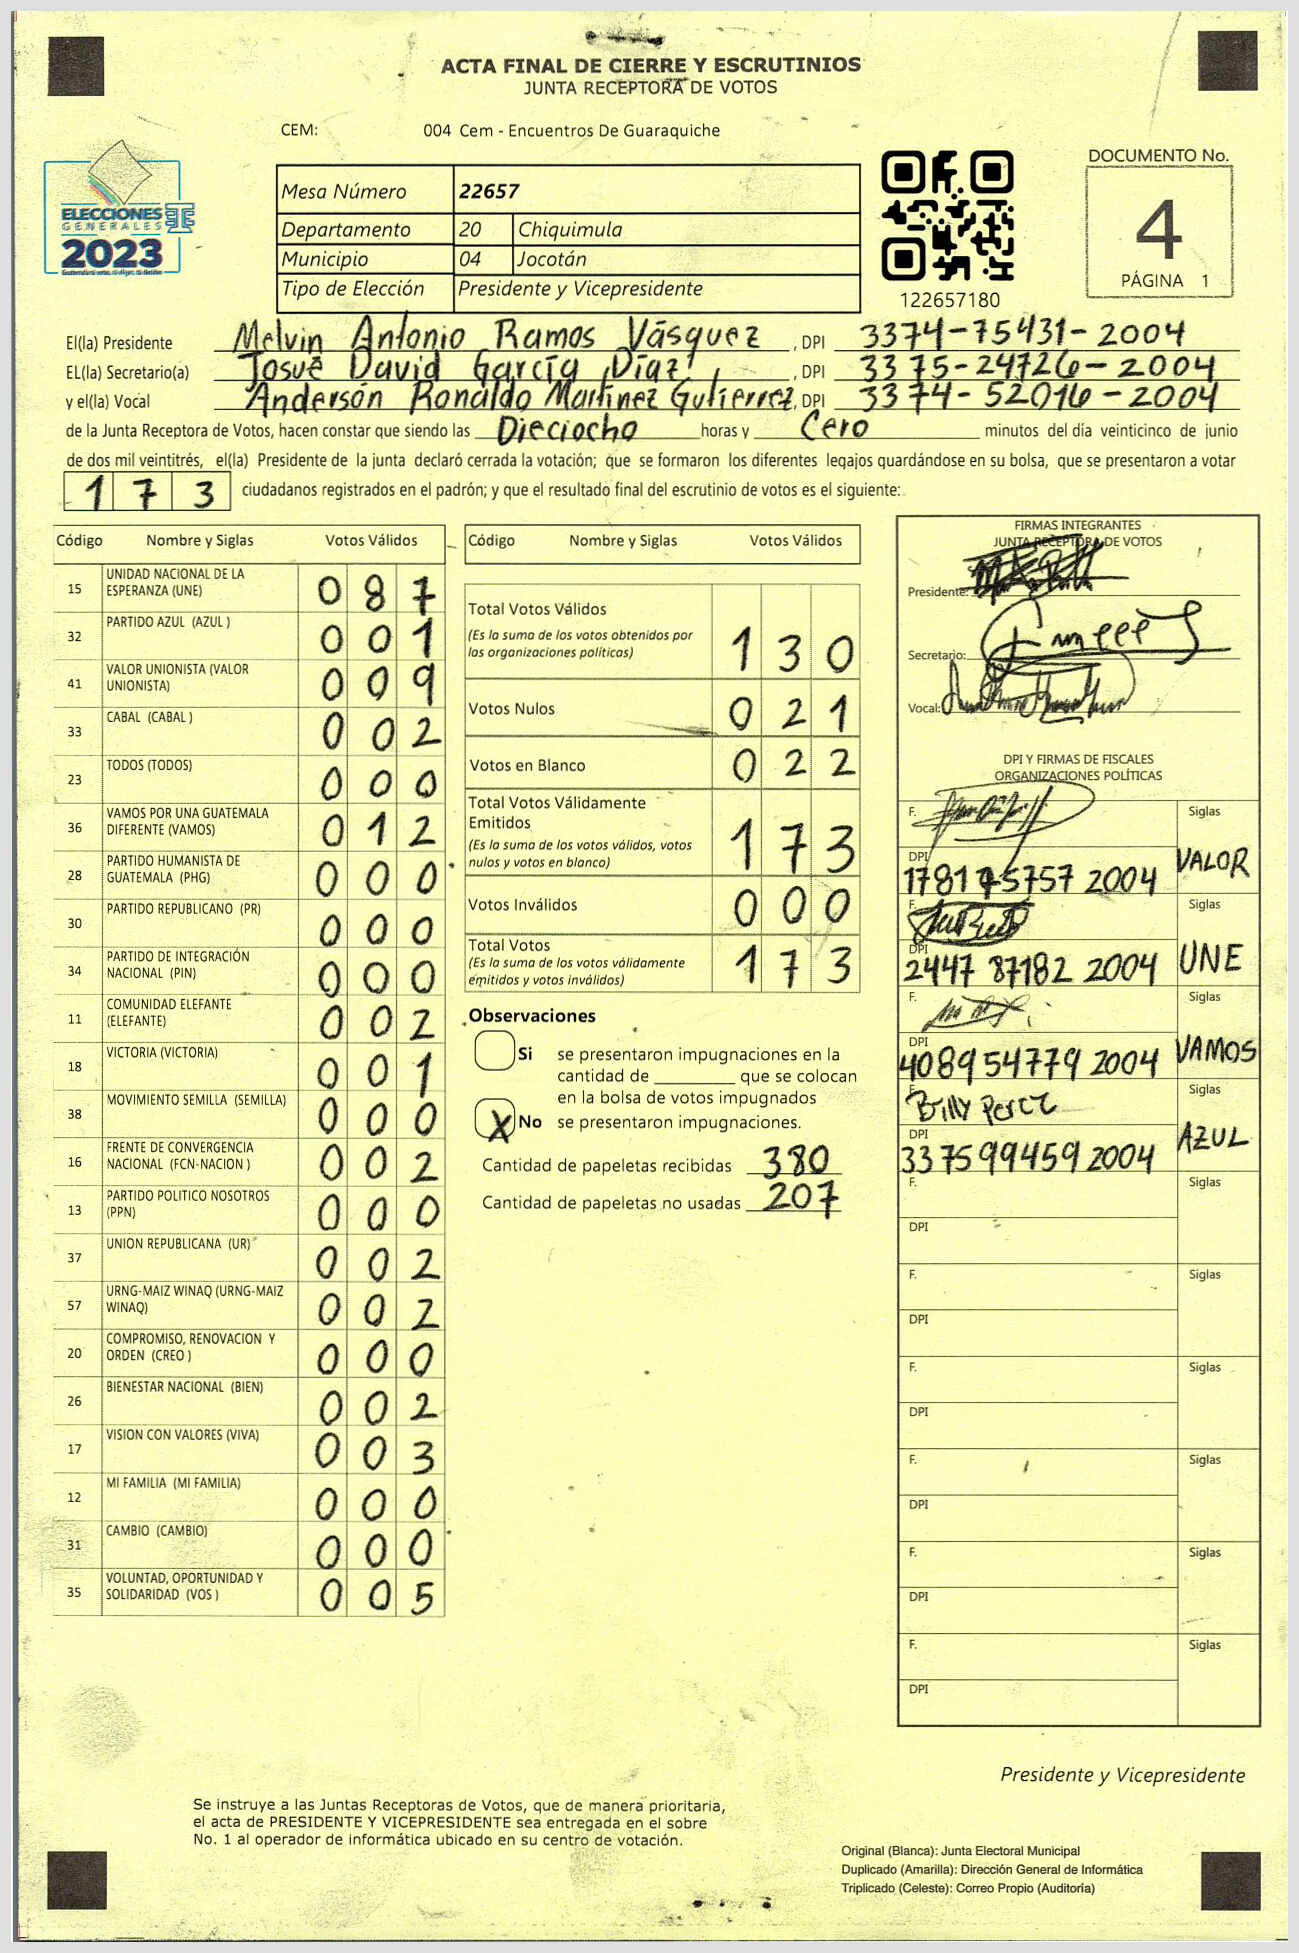 ACTA FINAL DE CIERRE Y ESCRUTINIOS
JUNTA RECEPTORA DE VOTOS
CEM: 004 Cem - Encuentros De Guaraquiche
ELECCIONES
GENERALES
2023
Mesa Número 22657
Departamento 20 Chiquimula
Municipio 04 Jocotán
Tipo de Elección Presidente y Vicepresidente
122657180
DOCUMENTO No.
4
PÁGINA 1
El(la) Presidente Melvin Antonio Ramos Vásquez, DPI 3374-75431-2004
EL(la) Secretario(a) Josué David García Díaz, DPI 3375-24726-2004
y el(la) Vocal Andersón Ronaldo Martinez Gutierrez, DPI 3374-52016-2004
de la Junta Receptora de Votos, hacen constar que siendo las Dieciocho horas y Cero minutos del día veinticinco de junio
de dos mil veintitrés, el(la) Presidente de la junta declaró cerrada la votación; que se formaron los diferentes legajos quardándose en su bolsa, que se presentaron a votar
173 ciudadanos registrados en el padrón; y que el resultado final del escrutinio de votos es el siguiente:
Código Nombre y Siglas Votos Válidos
15 UNIDAD NACIONAL DE LA ESPERANZA (UNE) 087
32 PARTIDO AZUL (AZUL ) 001
41 VALOR UNIONISTA (VALOR UNIONISTA) 009
33 CABAL (CABAL ) 002
23 TODOS (TODOS) 000
36 VAMOS POR UNA GUATEMALA DIFERENTE (VAMOS) 012
28 PARTIDO HUMANISTA DE GUATEMALA (PHG) 000
30 PARTIDO REPUBLICANO (PR) 000
34 PARTIDO DE INTEGRACIÓN NACIONAL (PIN) 000
11 COMUNIDAD ELEFANTE (ELEFANTE) 002
18 VICTORIA (VICTORIA) 001
38 MOVIMIENTO SEMILLA (SEMILLA) 000
16 FRENTE DE CONVERGENCIA NACIONAL (FCN-NACION ) 002
13 PARTIDO POLITICO NOSOTROS (PPN) 000
37 UNION REPUBLICANA (UR) 002
57 URNG-MAIZ WINAQ (URNG-MAIZ WINAQ) 002
20 COMPROMISO, RENOVACION Y ORDEN (CREO ) 000
26 BIENESTAR NACIONAL (BIEN) 002
17 VISION CON VALORES (VIVA) 003
12 MI FAMILIA (MI FAMILIA) 000
31 CAMBIO (CAMBIO) 000
35 VOLUNTAD, OPORTUNIDAD Y SOLIDARIDAD (VOS ) 005
Código Nombre y Siglas Votos Válidos
Total Votos Válidos 130
(Es la suma de los votos obtenidos por
las organizaciones políticas)
Votos Nulos 021
Votos en Blanco 022
Total Votos Válidamente
Emitidos 173
(Es la suma de los votos válidos, votos
nulos y votos en blanco)
Votos Inválidos 000
Total Votos 173
(Es la suma de los votos válidamente
emitidos y votos inválidos)
Observaciones
Si se presentaron impugnaciones en la
cantidad de ________ que se colocan
en la bolsa de votos impugnados
X No se presentaron impugnaciones.
Cantidad de papeletas recibidas 380
Cantidad de papeletas no usadas 207
FIRMAS INTEGRANTES
JUNTA RECEPTORA DE VOTOS
Presidente:
Secretario:
Vocal:
DPI Y FIRMAS DE FISCALES
ORGANIZACIONES POLÍTICAS
F. Siglas
DPI VALOR
F. Siglas
DPI 2447 87182 2004 UNE
F. Siglas
DPI 4089 54779 2004 VAMOS
F. Billy Perez Siglas
DPI 3375 99459 2004 AZUL
F. Siglas
DPI
F. Siglas
DPI
F. Siglas
DPI
F. Siglas
DPI
F. Siglas
DPI
F. Siglas
DPI
Presidente y Vicepresidente
Se instruye a las Juntas Receptoras de Votos, que de manera prioritaria,
el acta de PRESIDENTE Y VICEPRESIDENTE sea entregada en el sobre
No. 1 al operador de informática ubicado en su centro de votación.
Original (Blanca): Junta Electoral Municipal
Duplicado (Amarilla): Dirección General de Informática
Triplicado (Celeste): Correo Propio (Auditoría)